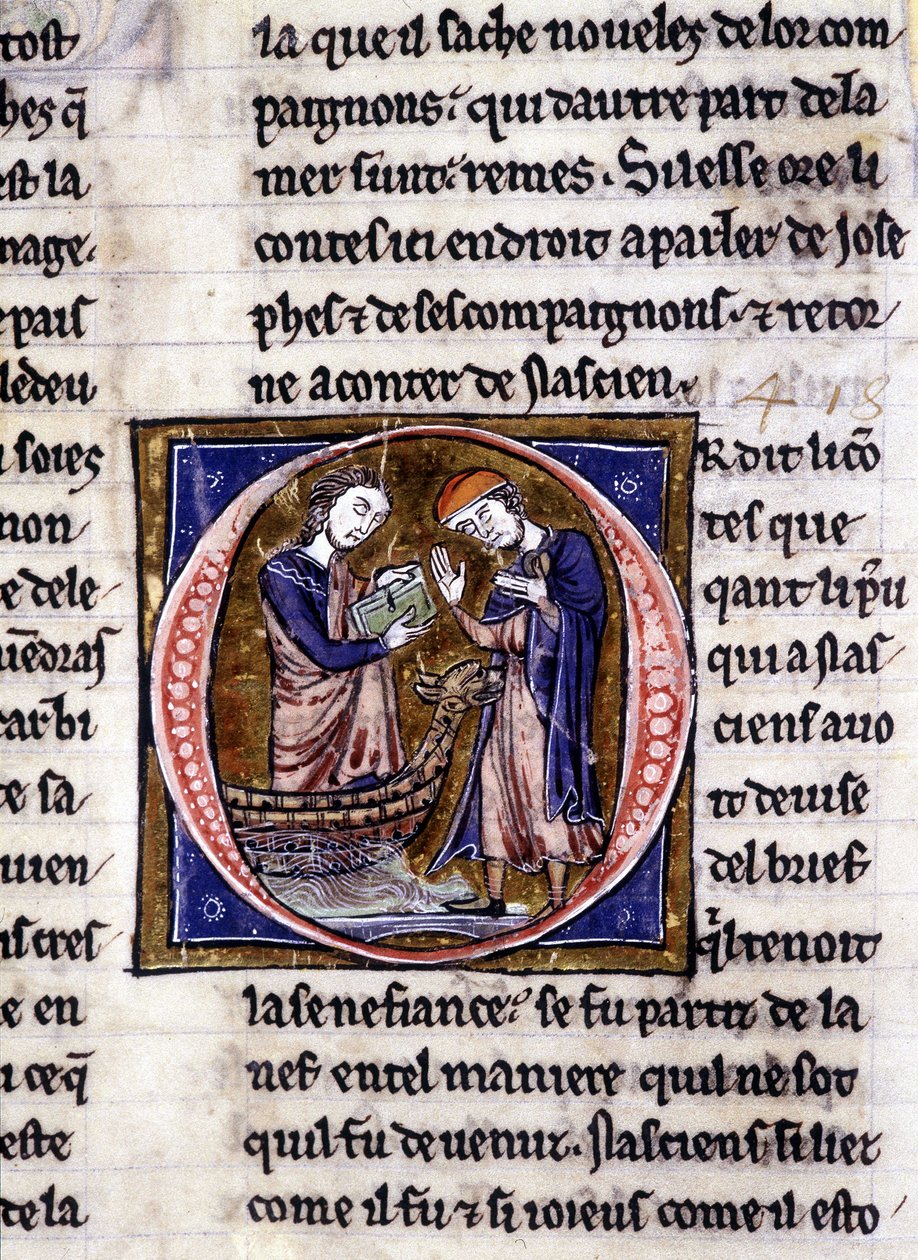 tost
hes q̃
est la
mage.
e pais
le deu
u soies
non
e dele
uẽdras
carbi
te sa
uien
ns tres
e en
u ce q̃
este
de la
la que il sache noueles de lor com
paignons. qui dautre part de la
mer sunt remes. Si lesse ore li
contes ici endroit a parler de Jose
phes ⁊ de ses compaignons. ⁊ retor
ne a conter de Nascien.
418
OR dit li cõ
tes que
qant li p̃u
qui a Nas
ciens auo
it deuise
del brief
q̃l tenoit
la senefiance. se fu partit de la
nef en tel maniere quil ne sot
quil fu deuenuz. Nasciens si lier
come il fu ⁊ si ioieus come il esto